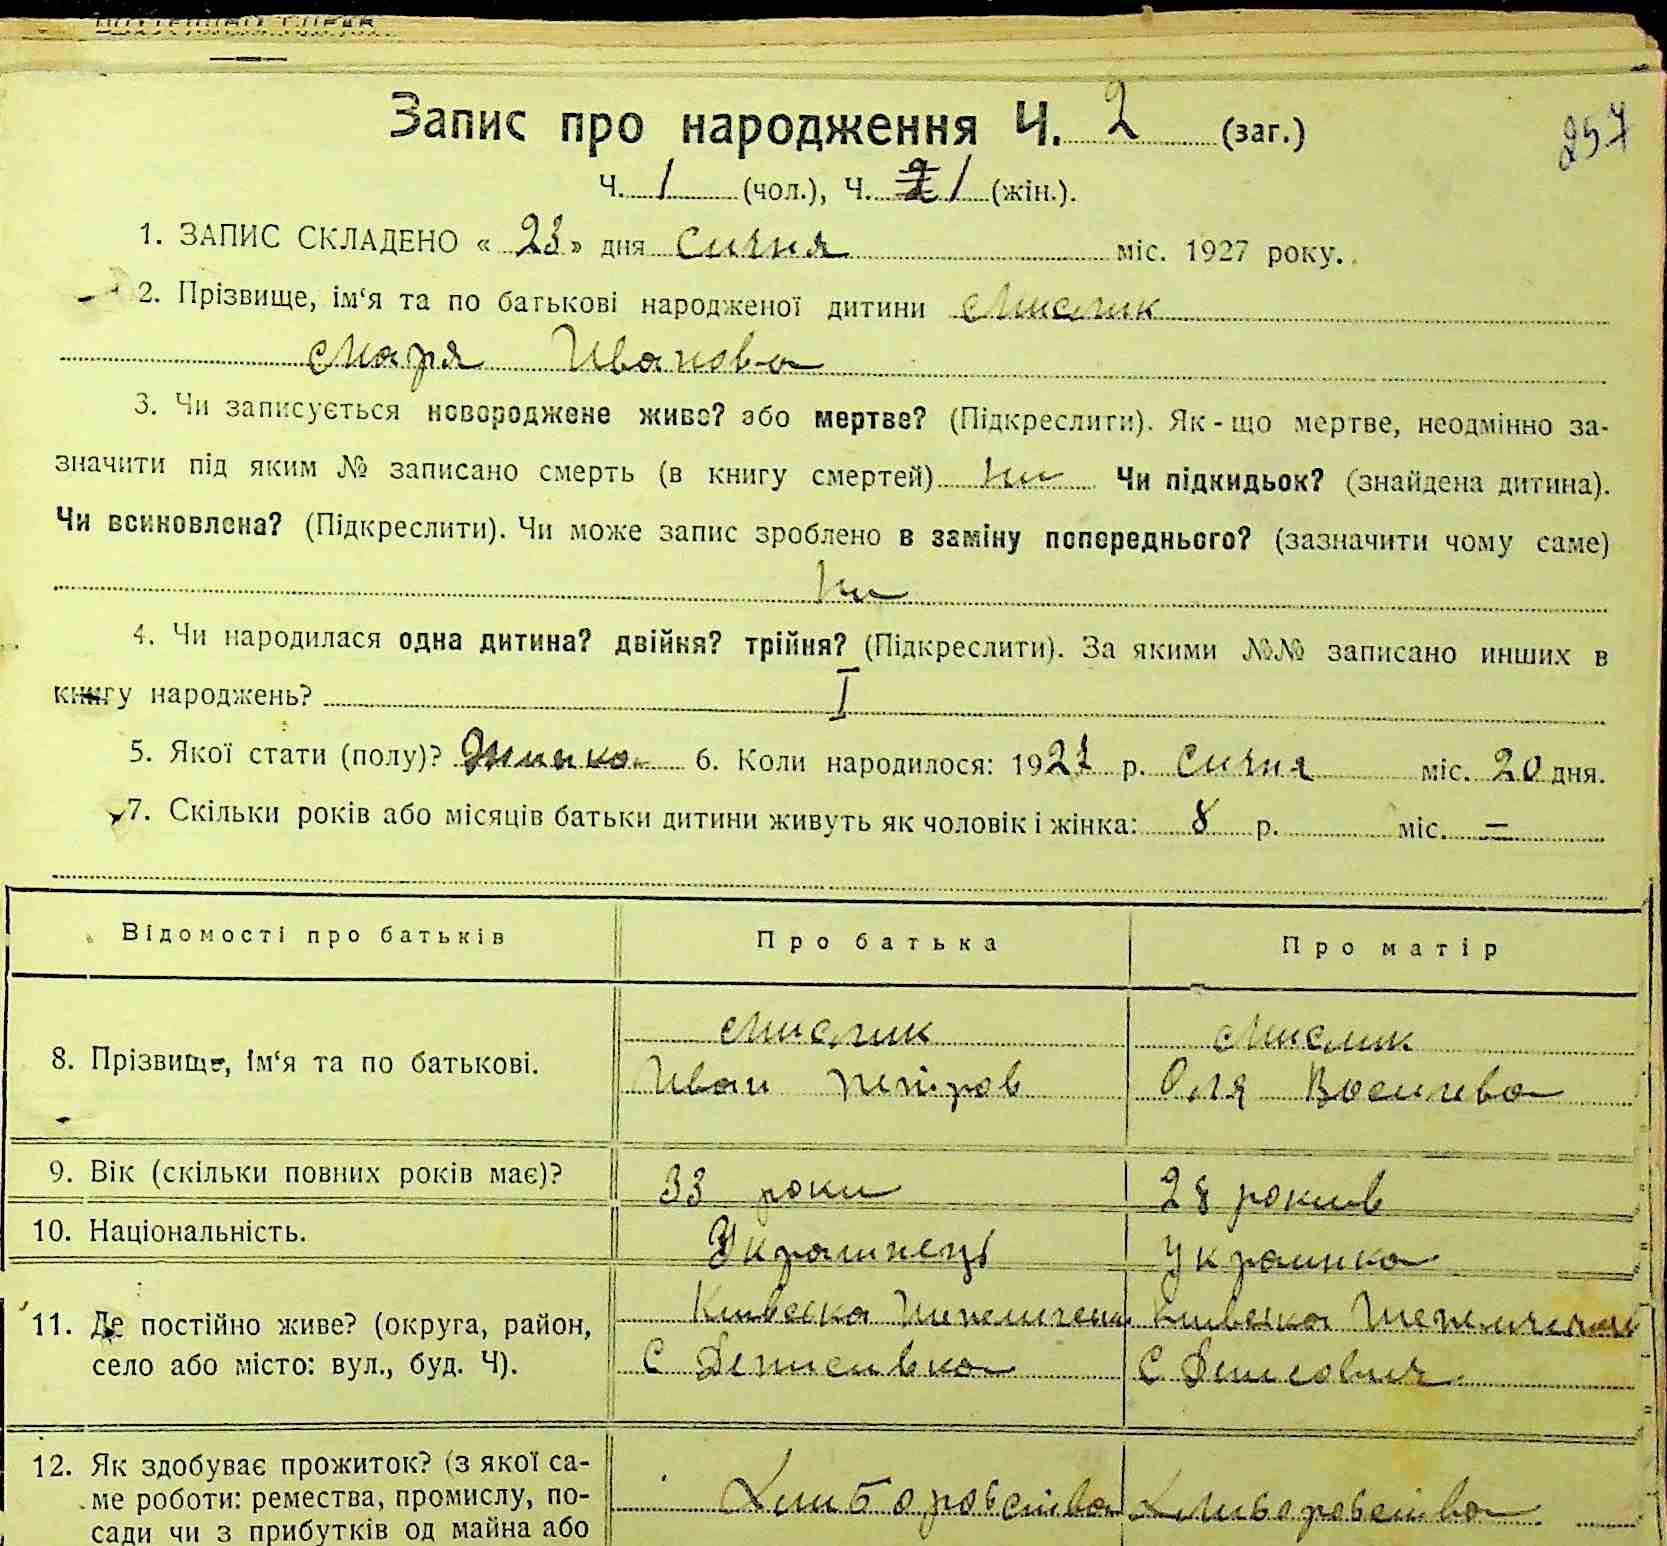 Запис про народження Ч. 2 (заг.)
257
Ч. 1 (чол.), Ч. 1 (жін.).
1. ЗАПИС СКЛАДЕНО « 23 » дня Сичня міс. 1927 року.
2. Прізвище, ім‘я та по батькові народженої дитини Мислик
Маря Ивановa
3. Чи записується новороджене живе? або мертве? (Підкреслити). Як-що мертве, неодмінно за-
значити під яким № записано смерть (в книгу смертей) ни Чи підкидьок? (знайдена дитина).
Чи всиновлена? (Підкреслити). Чи може запис зроблено в заміну попереднього? (зазначити чому саме)
ни
4. Чи народилася одна дитина? двійня? трійня? (Підкреслити). За якими №№ записано инших в
книгу народжень? I
5. Якої стати (полу)? Жинка 6. Коли народилося: 1927 р. Сичня міс. 20 дня.
7. Скільки років або місяців батьки дитини живуть як чоловік і жінка: 8 р. міс. —
Відомості про батьків Про батька Про матір
8. Прізвище, ім‘я та по батькові. Мислик Мислик
Иван Петров Оля Василева
9. Вік (скільки повних років має)? 33 роки 28 рокив
10. Національність. Украинець Украинка
11. Де постійно живе? (округа, район, Кивска Кивска
село або місто: вул., буд. Ч). С С
12. Як здобуває прожиток? (з якої са- Хлиборобства Хлиборобства
ме роботи: ремества, промислу, по-
сади чи з прибутків од майна або